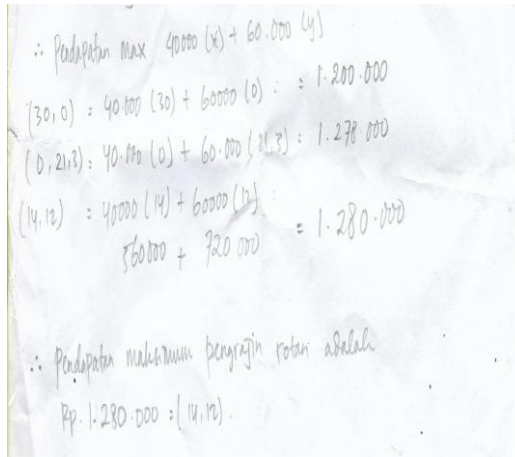 ∴ Pendapatan max 40000 (x) + 60.000 (y)
(30,0) : 40.000 (30) + 60000 (0) : = 1.200.000
(0,21,3) : 40.000 (0) + 60.000 (21,3) = 1.278 000
(14,12) : 40000 (14) + 60000 (12)
560000 + 720 000 = 1.280.000
∴ Pendapatan maksimum pengrajin rotan adalah
Rp. 1.280.000 : (14,12).